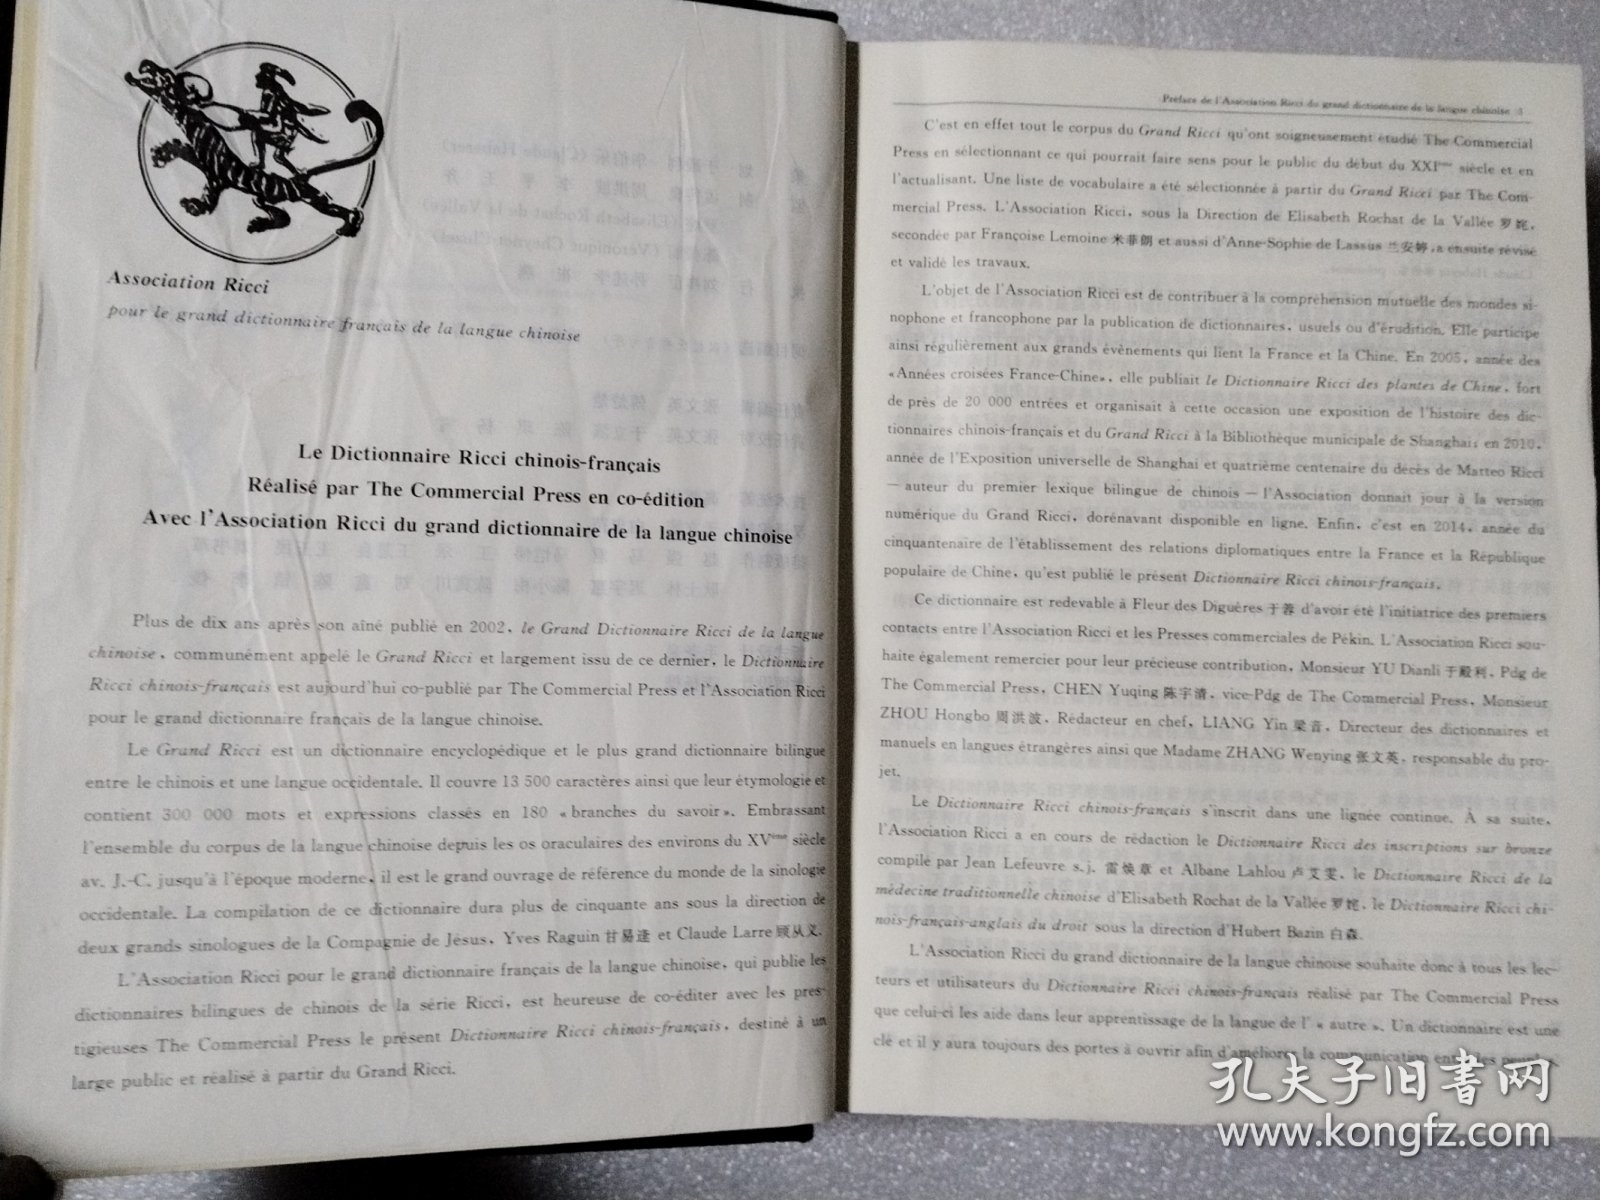 Association Ricci
pour le grand dictionnaire français de la langue chinoise
Le Dictionnaire Ricci chinois-français
Réalisé par The Commercial Press en co-édition
Avec l'Association Ricci du grand dictionnaire de la langue chinoise
Plus de dix ans après son aîné publié en 2002, le Grand Dictionnaire Ricci de la langue
chinoise, communément appelé le Grand Ricci et largement issu de ce dernier, le Dictionnaire
Ricci chinois-français est aujourd'hui co-publié par The Commercial Press et l'Association Ricci
pour le grand dictionnaire français de la langue chinoise.
Le Grand Ricci est un dictionnaire encyclopédique et le plus grand dictionnaire bilingue
entre le chinois et une langue occidentale. Il couvre 13 500 caractères ainsi que leur étymologie et
contient 300 000 mots et expressions classés en 180 « branches du savoir ». Embrassant
l'ensemble du corpus de la langue chinoise depuis les os oraculaires des environs du XVème siècle
av. J.-C. jusqu'à l'époque moderne, il est le grand ouvrage de référence du monde de la sinologie
occidentale. La compilation de ce dictionnaire dura plus de cinquante ans sous la direction de
deux grands sinologues de la Compagnie de Jésus, Yves Raguin 甘易逢 et Claude Larre 顾从义.
L'Association Ricci pour le grand dictionnaire français de la langue chinoise, qui publie les
dictionnaires bilingues de chinois de la série Ricci, est heureuse de co-éditer avec les pres-
tigieuses The Commercial Press le présent Dictionnaire Ricci chinois-français, destiné à un
large public et réalisé à partir du Grand Ricci.
Préface de l'Association Ricci du grand dictionnaire de la langue chinoise
C'est en effet tout le corpus du Grand Ricci qu'ont soigneusement étudié The Commercial
Press en sélectionnant ce qui pourrait faire sens pour le public du début du XXIème siècle et en
l'actualisant. Une liste de vocabulaire a été sélectionnée à partir du Grand Ricci par The Com-
mercial Press. L'Association Ricci, sous la Direction de Elisabeth Rochat de la Vallée 罗姹,
secondée par Françoise Lemoine 米菲朗 et aussi d'Anne-Sophie de Lassus 兰安婷, a ensuite révisé
et validé les travaux.
L'objet de l'Association Ricci est de contribuer à la compréhension mutuelle des mondes si-
nophone et francophone par la publication de dictionnaires, usuels ou d'érudition. Elle participe
ainsi régulièrement aux grands évènements qui lient la France et la Chine. En 2005, année des
«Années croisées France-Chine», elle publiait le Dictionnaire Ricci des plantes de Chine, fort
de près de 20 000 entrées et organisait à cette occasion une exposition de l'histoire des dic-
tionnaires chinois-français et du Grand Ricci à la Bibliothèque municipale de Shanghai; en 2010,
année de l'Exposition universelle de Shanghai et quatrième centenaire du décès de Matteo Ricci
— auteur du premier lexique bilingue de chinois — l'Association donnait jour à la version
numérique du Grand Ricci, dorénavant disponible en ligne. Enfin, c'est en 2014, année du
cinquantenaire de l'établissement des relations diplomatiques entre la France et la République
populaire de Chine, qu'est publié le présent Dictionnaire Ricci chinois-français.
Ce dictionnaire est redevable à Fleur des Diguères 于蓉 d'avoir été l'initiatrice des premiers
contacts entre l'Association Ricci et les Presses commerciales de Pékin. L'Association Ricci sou-
haite également remercier pour leur précieuse contribution, Monsieur YU Dianli 于殿利, Pdg de
The Commercial Press, CHEN Yuqing 陈宇清, vice-Pdg de The Commercial Press, Monsieur
ZHOU Hongbo 周洪波, Rédacteur en chef, LIANG Yin 梁音, Directeur des dictionnaires et
manuels en langues étrangères ainsi que Madame ZHANG Wenying 张文英, responsable du pro-
jet.
Le Dictionnaire Ricci chinois-français s'inscrit dans une lignée continue. À sa suite,
l'Association Ricci a en cours de rédaction le Dictionnaire Ricci des inscriptions sur bronze
compilé par Jean Lefeuvre s.j. 雷焕章 et Albane Lahlou 卢艾雯, le Dictionnaire Ricci de la
médecine traditionnelle chinoise d'Elisabeth Rochat de la Vallée 罗姹, le Dictionnaire Ricci chi-
nois-français-anglais du droit sous la direction d'Hubert Bazin 白森.
L'Association Ricci du grand dictionnaire de la langue chinoise souhaite donc à tous les lec-
teurs et utilisateurs du Dictionnaire Ricci chinois-français réalisé par The Commercial Press
que celui-ci les aide dans leur apprentissage de la langue de l' « autre ». Un dictionnaire est une
clé et il y aura toujours des portes à ouvrir afin d'améliorer la communication entre les
孔夫子旧书网
www.kongfz.com